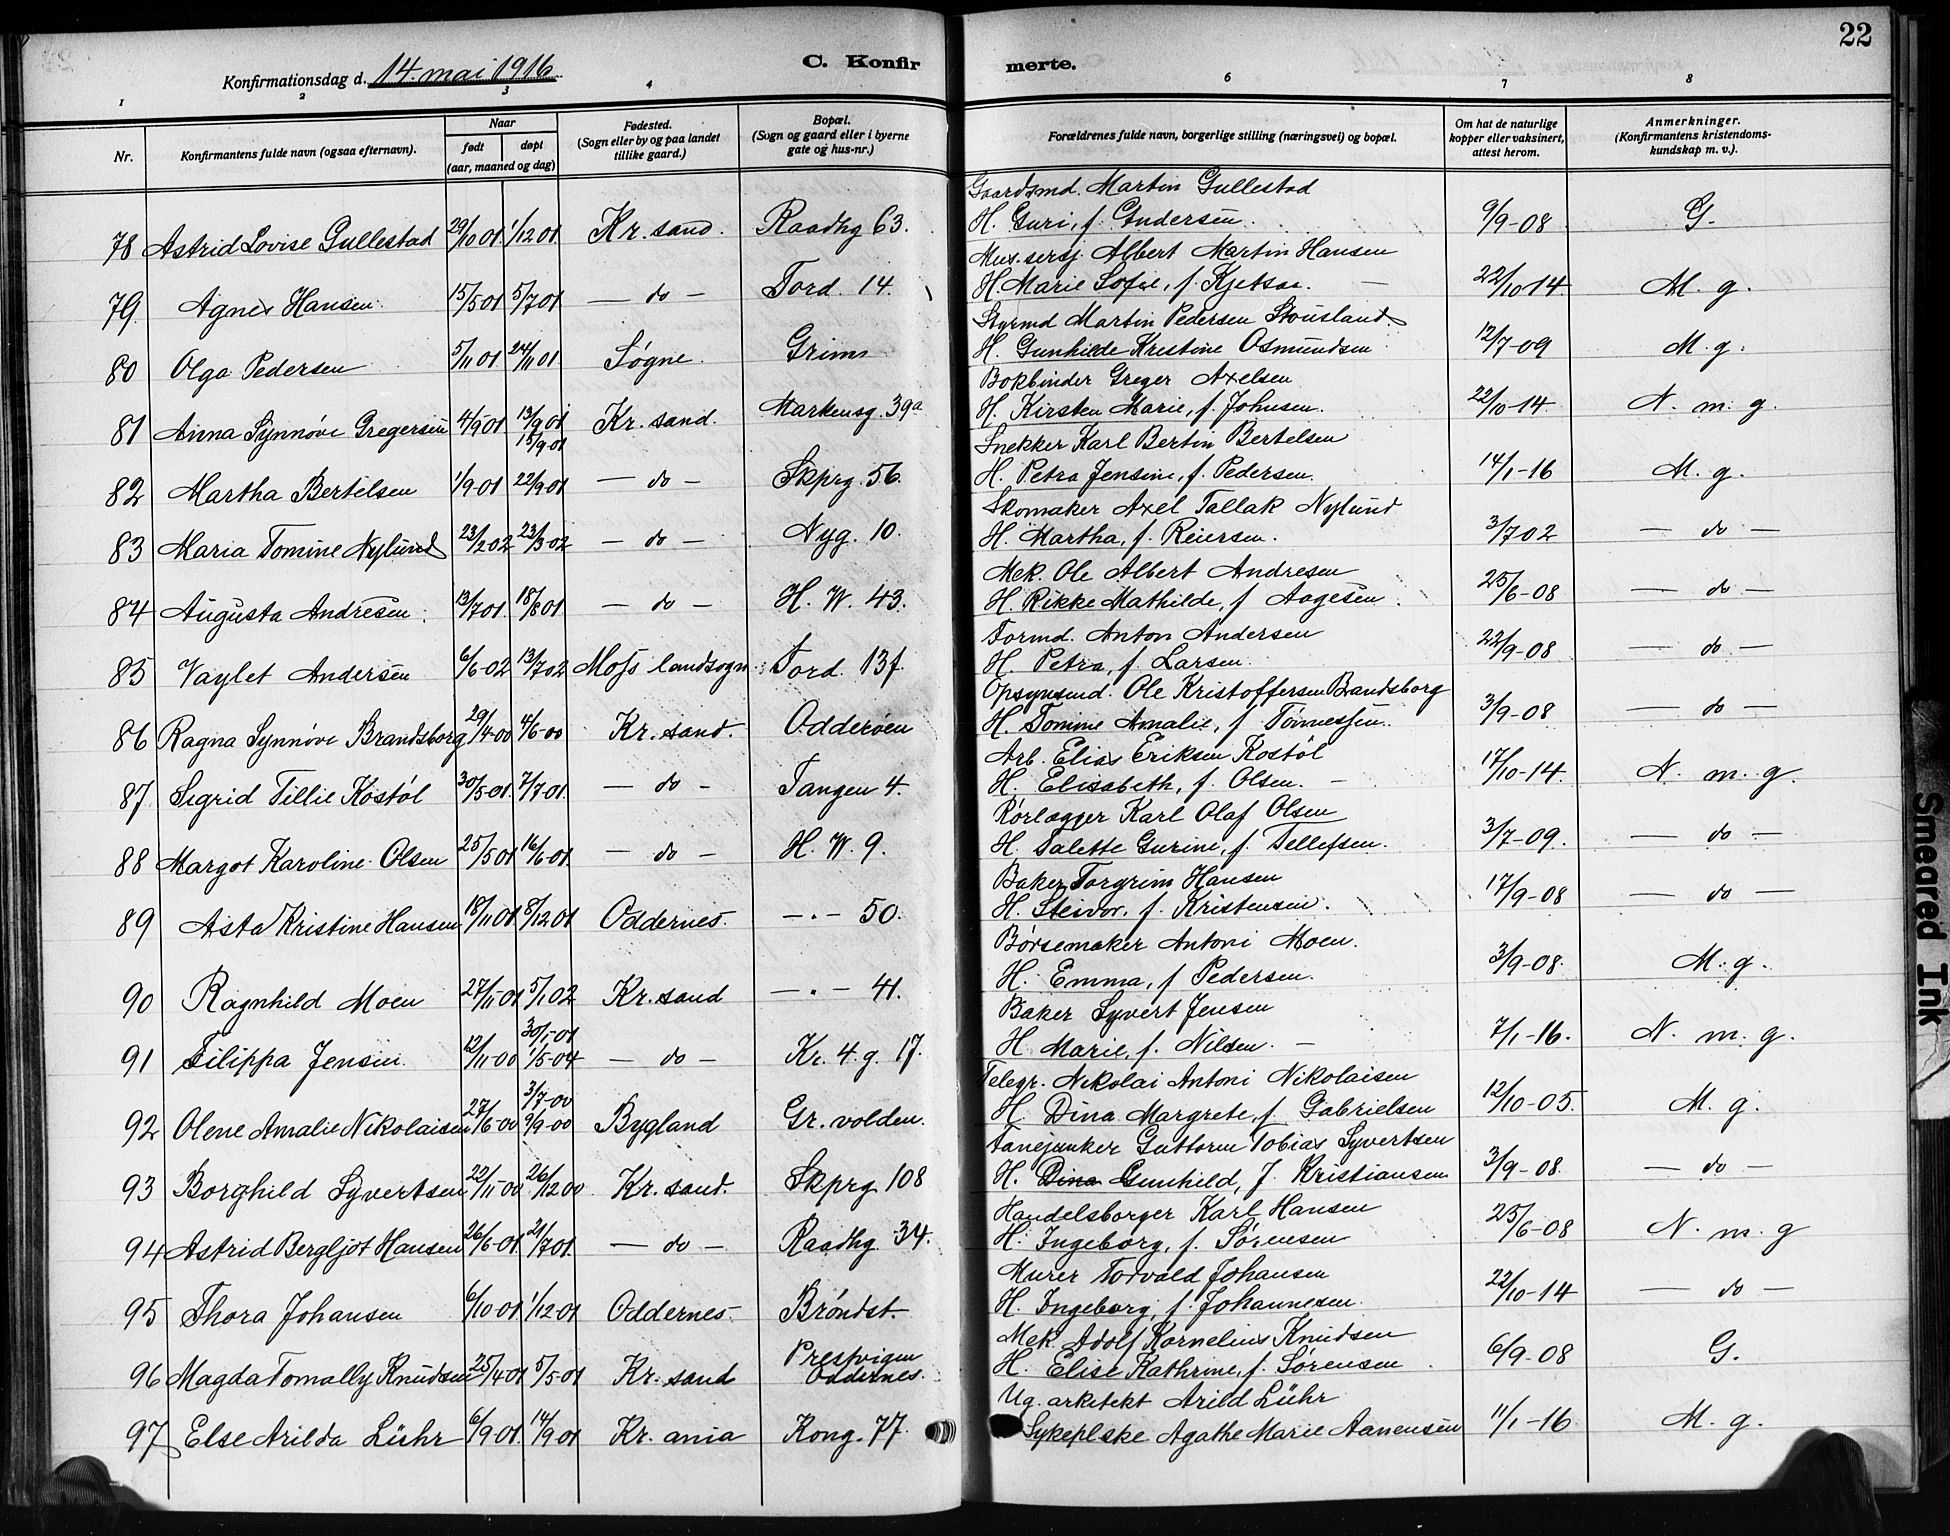 22
Konfirmationsdag d. 14. mai 1916
C. Konfirmerte.
1 2 3 4 6 7 8
Nr. | Konfirmantens fulde navn (ogsaa efternavn). | Naar født | døpt (aar, maaned og dag) | Fødested. (Sogn eller by og paa landet tillike gaard.) | Bopæl. (Sogn og gaard eller i byerne gate og hus-nr.) | Forældrenes fulde navn, borgerlige stilling (næringsvei) og bopæl. | Om hat de naturlige kopper eller vaksinert, attest herom. | Anmerkninger. (Konfirmantens kristendomskundskap m. v.).
Gaardsmd. Martin Gullestad
78 Astrid Lovise Gullestad 29/10 01 1/12 01 Kr. sand. Raadhg 63. H. Guri, f. Gundersen. 9/9-08 G.
Mus. sersj. Albert Martin Hansen
79 Agnes Hansen 15/5 01 5/7 01 — do — Tord. 14. H. Marie Sofie, f. Kjetsaa. — 22/10 14 M. g.
Styrmd Martin Pedersen Stousland
80 Olga Pedersen 5/11 01 24/11 01 Søgne Grim H. Gunhilde Kristine Osmundsen 12/7-09 M. g.
Bokbinder Greger Axelsen
81 Anna Synnøve Gregersen 4/9 01 13/9 01 15/9 01 Kr. sand. Markensg. 39a H. Kirsten Marie, f. Johnsen. 22/10-14 N. m. g.
Snekker Karl Bertin Bertelsen
82 Martha Bertelsen 1/9-01 22/9 01 — do — Skprg. 56. H. Petra Jensine, f. Pedersen. 14/1-16 M. g.
Skomaker Axel Tallak Nylund
83 Maria Tomine Nylund 23/2 02 23/3-02 — do — Nyg. 10. H. Martha, f. Reiersen. 3/7 02 — do —
Mek. Ole Albert Andresen
84 Augusta Andresen. 13/7 01. 18/8 01 — do — H. W. 43. H. Rikke Mathilde, f Aagesen 25/6-08 — do —
Formd. Anton Andersen
85 Vaylet Andersen 6/6-02 13/7 02 Moss landsogn. Tord. 13f. H. Petra, f. Larsen 22/9-08 — do —
Opsynsmd. Ole Kristoffersen Brandsborg
86 Ragna Synnøve Brandsborg 29/4-00 4/6-00 Kr. sand. Odderøen H. Tomine Amalie, f Tønnessen. 3/9-08 — do —
Arb. Elias Eriksen Kostøl
87 Sigrid Tillie Kostøl 30/5-01. 7/7-01. — do — Tangen 4. H. Elisabeth, f. Olsen. — 17/10-14. N. m. g.
Rørlægger Karl Olaf Olsen
88 Margot Karoline Olsen 25/5 01 16/6-01. — do — H. W. 9. H. Talette Gurine, f. Tellefsen. 3/7-09. — do —
Baker Torgrim Hansen
89 Asta Kristine Hansen 18/11 01 8/12 01 Oddernes. — · — 50. H. Steivor, f. Kristensen. 17/9-08 — do —
Børsemaker Antoni Moen.
90 Ragnhild Moen 27/11-01 5/1 02 Kr. sand — · — 41. H. Emma, f Pedersen. 3/9-08. M. g.
Baker Syvert Jensen
91 Filippa Jensen. 12/11-00 30/1-01 1/5-04 — do — Kr. 4. g. 17. H. Marie, f. Nilsen. — 7/1-16. N. m. g.
Telegr. Nikolai Antoni Nikolaisen
92 Olene Amalie Nikolaisen 27/6-00 3/7-00 9/9-00 Bygland Gr. volden. H. Dina Margrete, f. Gabrielsen 12/10-05. M. g.
Fanejunker Guttorm Tobias Syvertsen
93 Borghild Syvertsen 22/11-00 26/12 00 Kr. sand. Skprg 108 H. Dina Gunhild, f. Kristiansen 3/9-08. — do —
Handelsborger Karl Hansen
94 Astrid Bergljot Hansen 26/6-01 21/7 01 — do — Raadhg. 34. H. Ingeborg, f. Sørensen 25/6-08 N. m. g
Murer Torvald Johansen
95 Thora Johansen 6/10-01 1/12-01 Oddernes. Brøndst. H. Ingeborg, f. Johannesen. 22/10-14 — do —
Mek. Adolf Kornelius Knudsen
96 Magda Tomally Knudsen 25/4-01 5/5-01 Kr. sand Prestvigen Oddernes. H. Elise Kathrine, f. Sørensen. 6/9-08 G.
Ug. arkitekt Arild Lühr
97 Else Arilda Lühr 6/9 01. 14/9-01 Kr. ania Kong. 77. Sykepleske Agathe Marie Aanensen 11/1-16 M. g.
Smeared Ink